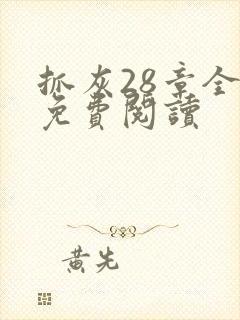 抓灰28章全
免費閱讀
黃先